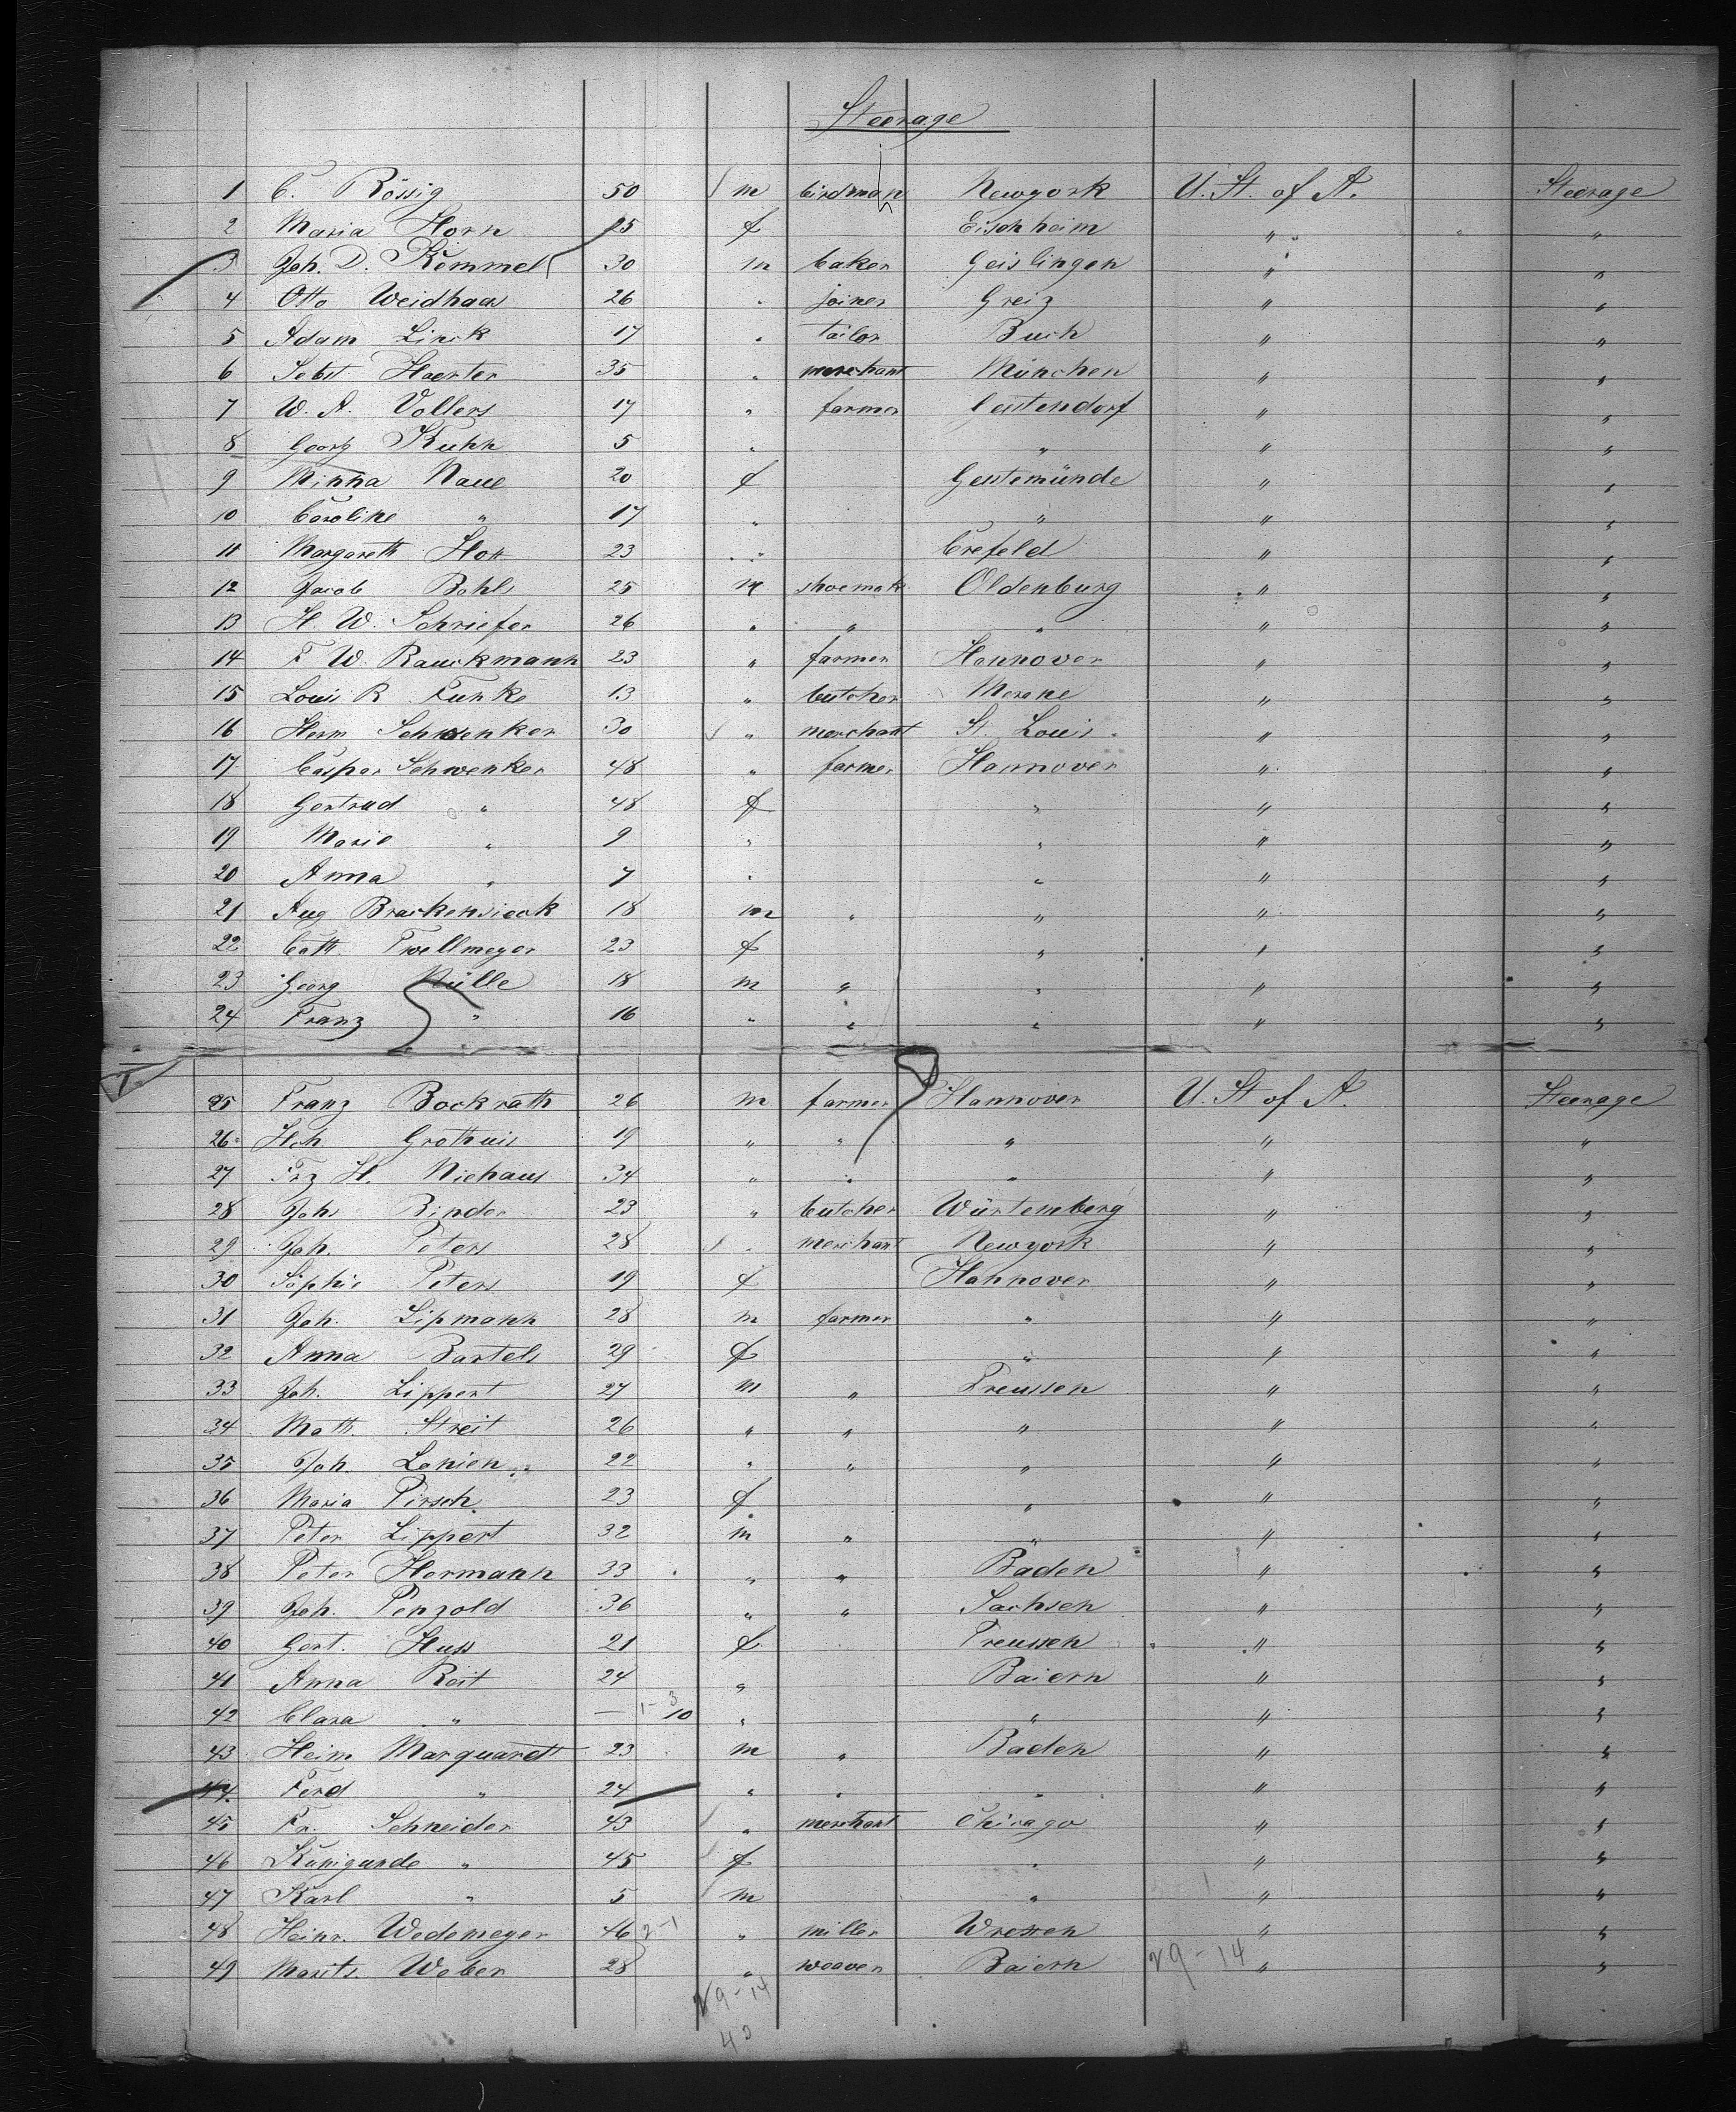 Steerage
1 C. Rössig 50 m birdman Newyork U. St. of A. Steerage
2 Maria Horn 25 f Eischheim " "
3 Joh. D. Kemmel 30 m baker Geislingen " "
4 Otto Weidhaas 26 " joiner Greiz " "
5 Adam Linck 17 " tailor Buch " "
6 Sebst Haerter 35 " merchant München " "
7 W. A. Vollers 17 " farmer Geestendorf " "
8 Georg Kuhn 5 " " " "
9 Minna Naue 20 f Geestemünde " "
10 Caroline " 17 " " " "
11 Margareth Hott 23 " Crefeld " "
12 Jacob Bohls 25 m shoemak Oldenburg " "
13 H. W. Schriefer 26 " " " " "
14 F W. Rauckmann 23 " farmer Hannover " "
15 Louis R Funke 13 " butcher Merane " "
16 Herm Schwenker 30 " merchant St. Louis " "
17 Caspar Schwenker 48 " farmer Hannover " "
18 Gertrud " 48 f " " "
19 Marie " 9 " " " "
20 Anna " 7 " " " "
21 Aug Brackensieck 18 m " " " "
22 Cath. Twellmeyer 23 f " " "
23 Georg Nülle 18 m " " " "
24 Franz " 16 " " " " "
25 Franz Bockrath 26 m farmer Hannover U. St of A. Steerage
26 Hch Grothuis 19 " " " " "
27 Frz H. Niehaus 34 " " " " "
28 Johs Binder 23 " butcher Würtemberg " "
29 Joh. Peters 28 " merchant Newyork " "
30 Sophie Peters 19 f Hannover " "
31 Joh. Lipmann 28 m farmer " " "
32 Anna Bartels 29 f " " "
33 Joh. Lippert 27 m " Preussen " "
34 Math. Streit 26 " " " " "
35 Joh. Lonien 22 " " " " "
36 Maria Pirsch 23 f " " "
37 Peter Lippert 32 m " " " "
38 Peter Hermann 33 " " Baden " "
39 Joh. Penzold 36 " " Sachsen " "
40 Gert. Huss 21 f Preussen " "
41 Anna Reit 24 " Baiern " "
42 Clara " — 3 10 " " " "
43 Heinr Marquardt 23 m " Baden " "
44 Ferd " 24 " " " " "
45 Fr. Schneider 43 " merchant Chicago " "
46 Kunigunde " 45 f " " "
47 Karl " 5 m " " "
48 Heinr. Wedemeyer 46 2-1 " miller Wressen " "
49 Morits. Weber 28 " weaver Baiern 29-14 " "
29-14